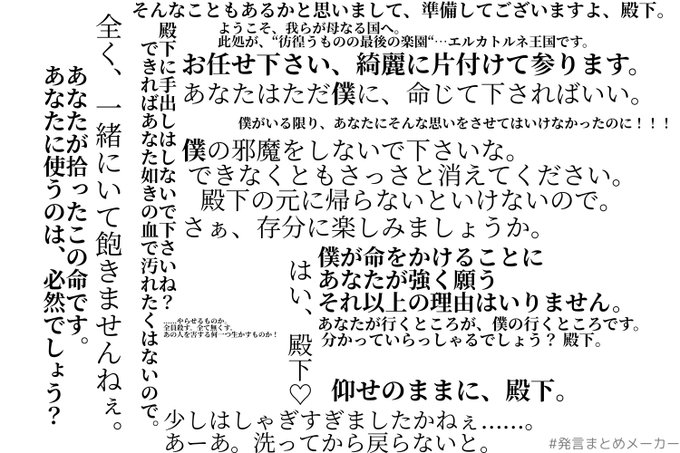 そんなこともあるかと思いまして、準備してございますよ、殿下。
ようこそ、我らが母なる国へ。
此処が、“彷徨うものの最後の楽園“…エルカトルネ王国です。
お任せ下さい、綺麗に片付けて参ります。
あなたはただ僕に、命じて下さればいい。
僕がいる限り、あなたにそんな思いをさせてはいけなかったのに！！！
僕の邪魔をしないで下さいな。
できなくともさっさと消えてください。
殿下の元に帰らないといけないので。
さぁ、存分に楽しみましょうか。
殿下に手出しはしないで下さいね？
できればあなた如きの血で汚れたくはないので。
全く、一緒にいて飽きませんねぇ。
あなたが拾ったこの命です。
あなたに使うのは、必然でしょう？
はい、殿下♡
僕が命をかけることに
あなたが強く願う
それ以上の理由はいりません。
あなたが行くところが、僕の行くところです。
分かっていらっしゃるでしょう？ 殿下。
……やらせるものか。
全員殺す。全て無くす。
あの人を害する何一つ生かすものか！
仰せのままに、殿下。
少しはしゃぎすぎましたかねぇ……。
あーあ。洗ってから戻らないと。
#発言まとめメーカー